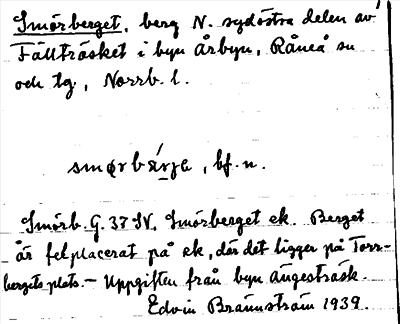 Smörberget, berg N. sydöstra delen av
Fällträsket i byn Årbyn, Råneå sn
och tg, Norrb. l.
smørbärje, bf. n.
Smörb. G. 37 SV. Smörberget ek. Berget
är felplacerat på ek, där det ligger på Torr-
bergets plats. – Uppgiften från byn Ängesträsk.
Edvin Brännström 1939.